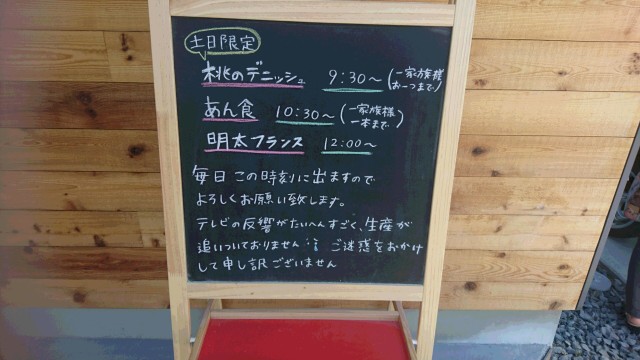 土日限定
桃のデニッシュ 9:30〜 (一家族様
お一つまで)
あん食 10:30〜 (一家族様
一本まで)
明太フランス 12:00〜
毎日この時刻に出ますので
よろしくお願い致します。
テレビの反響がたいへんすごく、生産が
追いついておりません ご迷惑をおかけ
して申し訳ございません